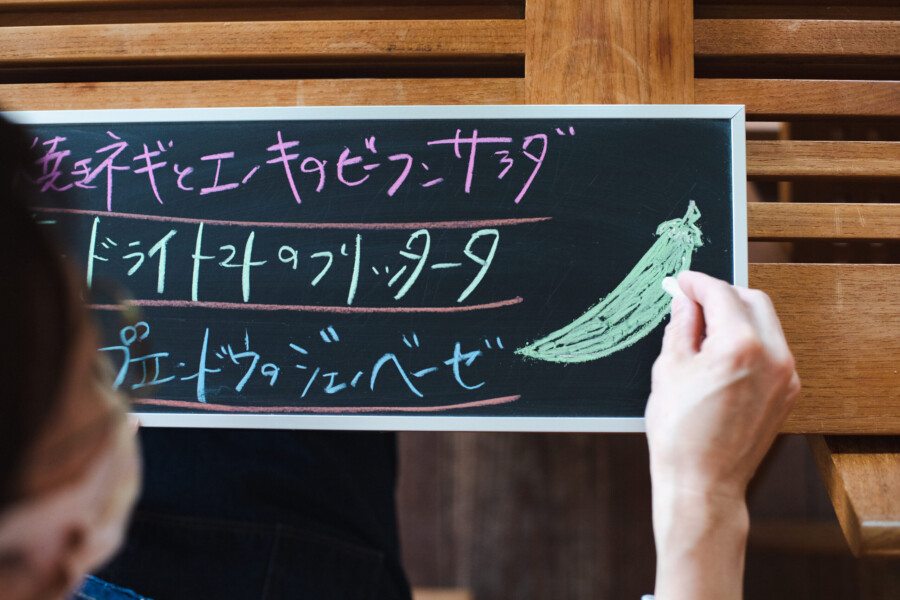 焼きネギとエノキのビーフンサラダ
ドライトマトのフリッタータ
プエンドウのジェノベーゼ